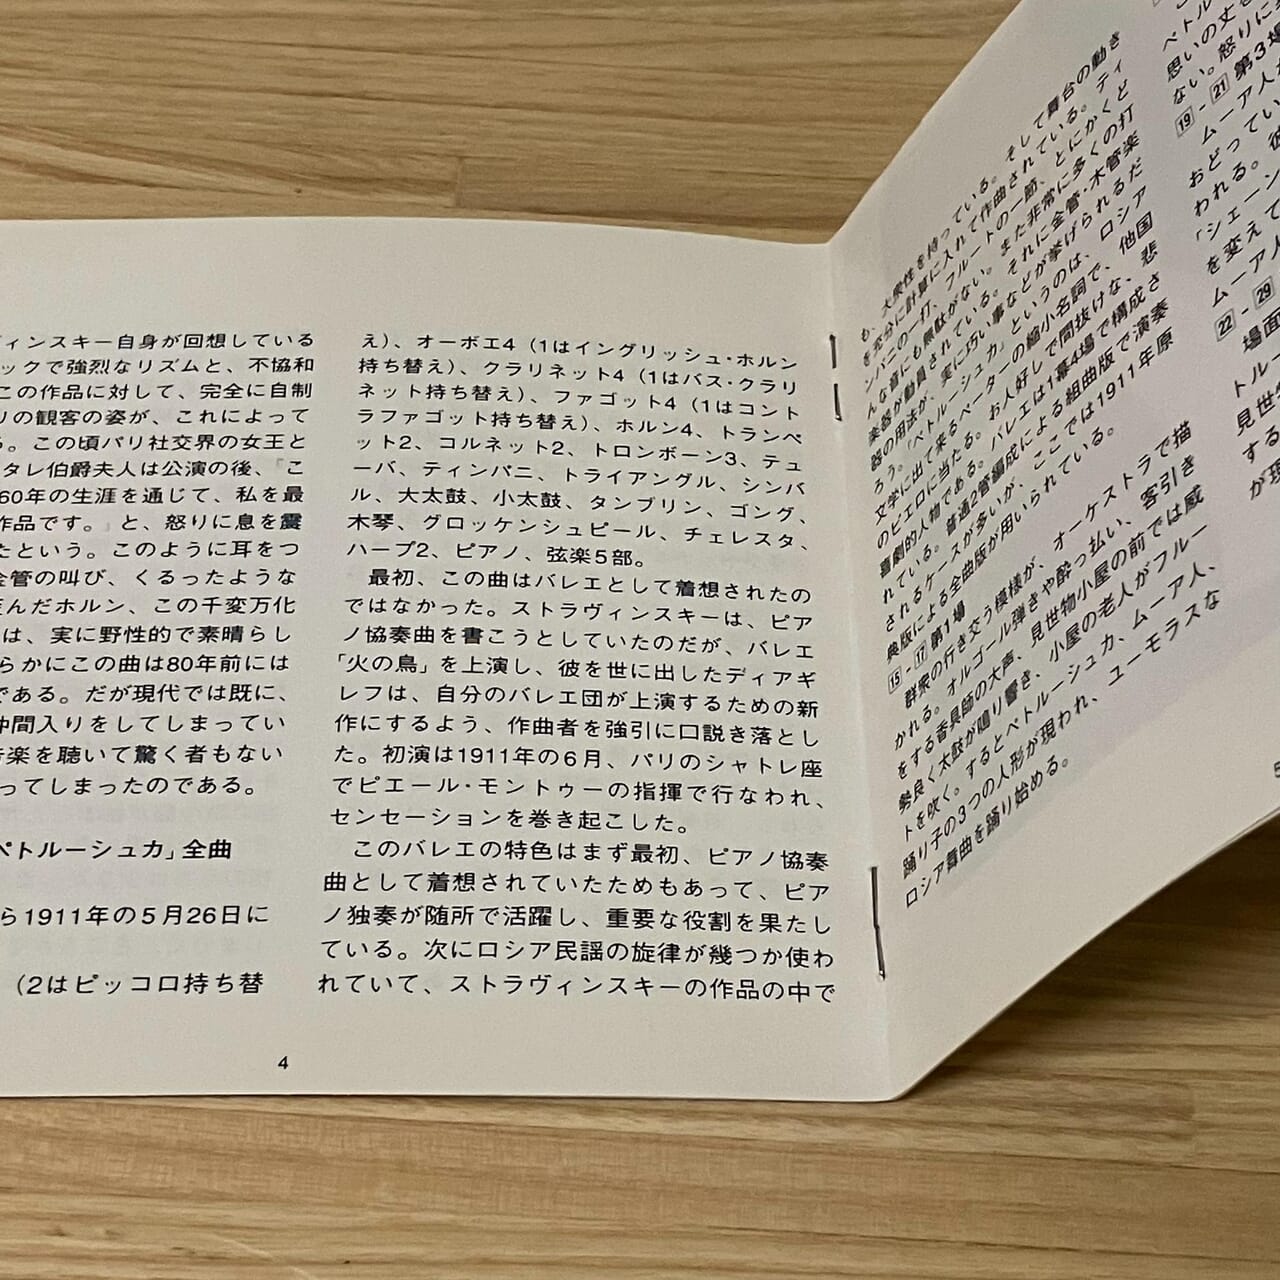 ヴィンスキー自身が回想している
ックで強烈なリズムと、不協和
この作品に対して、完全に自制
リの観客の姿が、これによって
る。この頃パリ社交界の女王と
タレ伯爵夫人は公演の後、「こ
60年の生涯を通じて、私を最
作品です。」と、怒りに息を震
たという。このように耳をつ
金管の叫び、くるったような
歪んだホルン、この千変万化
は、実に野性的で素晴らし
らかにこの曲は80年前には
である。だが現代では既に、
仲間入りをしてしまってい
音楽を聴いて驚く者もない
ってしまったのである。
ペトルーシュカ」全曲
ら1911年の5月26日に
(2はピッコロ持ち替
え)、オーボエ4(1はイングリッシュ・ホルン
持ち替え)、クラリネット4(1はバス・クラリ
ネット持ち替え)、ファゴット4(1はコント
ラファゴット持ち替え)、ホルン4、トランペ
ット2、コルネット2、トロンボーン3、テュ
ーバ、ティンパニ、トライアングル、シンバ
ル、大太鼓、小太鼓、タンブリン、ゴング、
木琴、グロッケンシュピール、チェレスタ、
ハープ2、ピアノ、弦楽5部。
最初、この曲はバレエとして着想されたの
ではなかった。ストラヴィンスキーは、ピア
ノ協奏曲を書こうとしていたのだが、バレエ
「火の鳥」を上演し、彼を世に出したディアギ
レフは、自分のバレエ団が上演するための新
作にするよう、作曲者を強引に口説き落とし
た。初演は1911年の6月、パリのシャトレ座
でピエール・モントゥーの指揮で行なわれ、
センセーションを巻き起こした。
このバレエの特色はまず最初、ピアノ協奏
曲として着想されていたためもあって、ピア
ノ独奏が随所で活躍し、重要な役割を果たし
ている。次にロシア民謡の旋律が幾つか使わ
れていて、ストラヴィンスキーの作品の中で
4
も、大衆性を持っている。そして舞台の動き
を充分に計算に入れて作曲されている。ティ
ンパニの一打、フルートの一節、とにかくど
んな音にも無駄がない。また非常に多くの打
楽器が動員されている。それに金管・木管楽
器の用法が、実に巧い事などが挙げられるだ
ろう。「ペトルーシュカ」というのは、ロシア
文学に出て来るペーターの縮小名詞で、他国
のピエロに当たる。お人好しで間抜けな、悲
喜劇的人物である。バレエは1幕4場で構成さ
れている。普通2管編成による組曲版で演奏
されるケースが多いが、ここでは1911年原
典版による全曲版が用いられている。
15 - 17 第1場
群衆の行き交う模様が、オーケストラで描
かれる。オルゴール弾きや酔っ払い、客引き
をする香具師の大声、見世物小屋の前では威
勢良く太鼓が鳴り響き、小屋の老人がフルー
トを吹く。するとペトルーシュカ、ムーア人、
踊り子の3つの人形が現われ、ユーモラスな
ロシア舞曲を踊り始める。
ペトルー
思いの丈を
ない。怒りに
19 - 21 第3場
ムーア人
おどってい
われる。彼
「シェーン
を変えて
ムーア人
22 - 29
場面
トルー
見世
する
が現
5